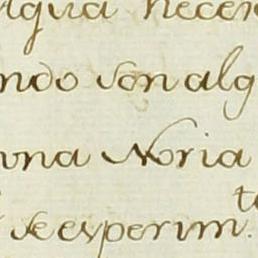 agua neces
ndo son alg
una Noria
se experim.to